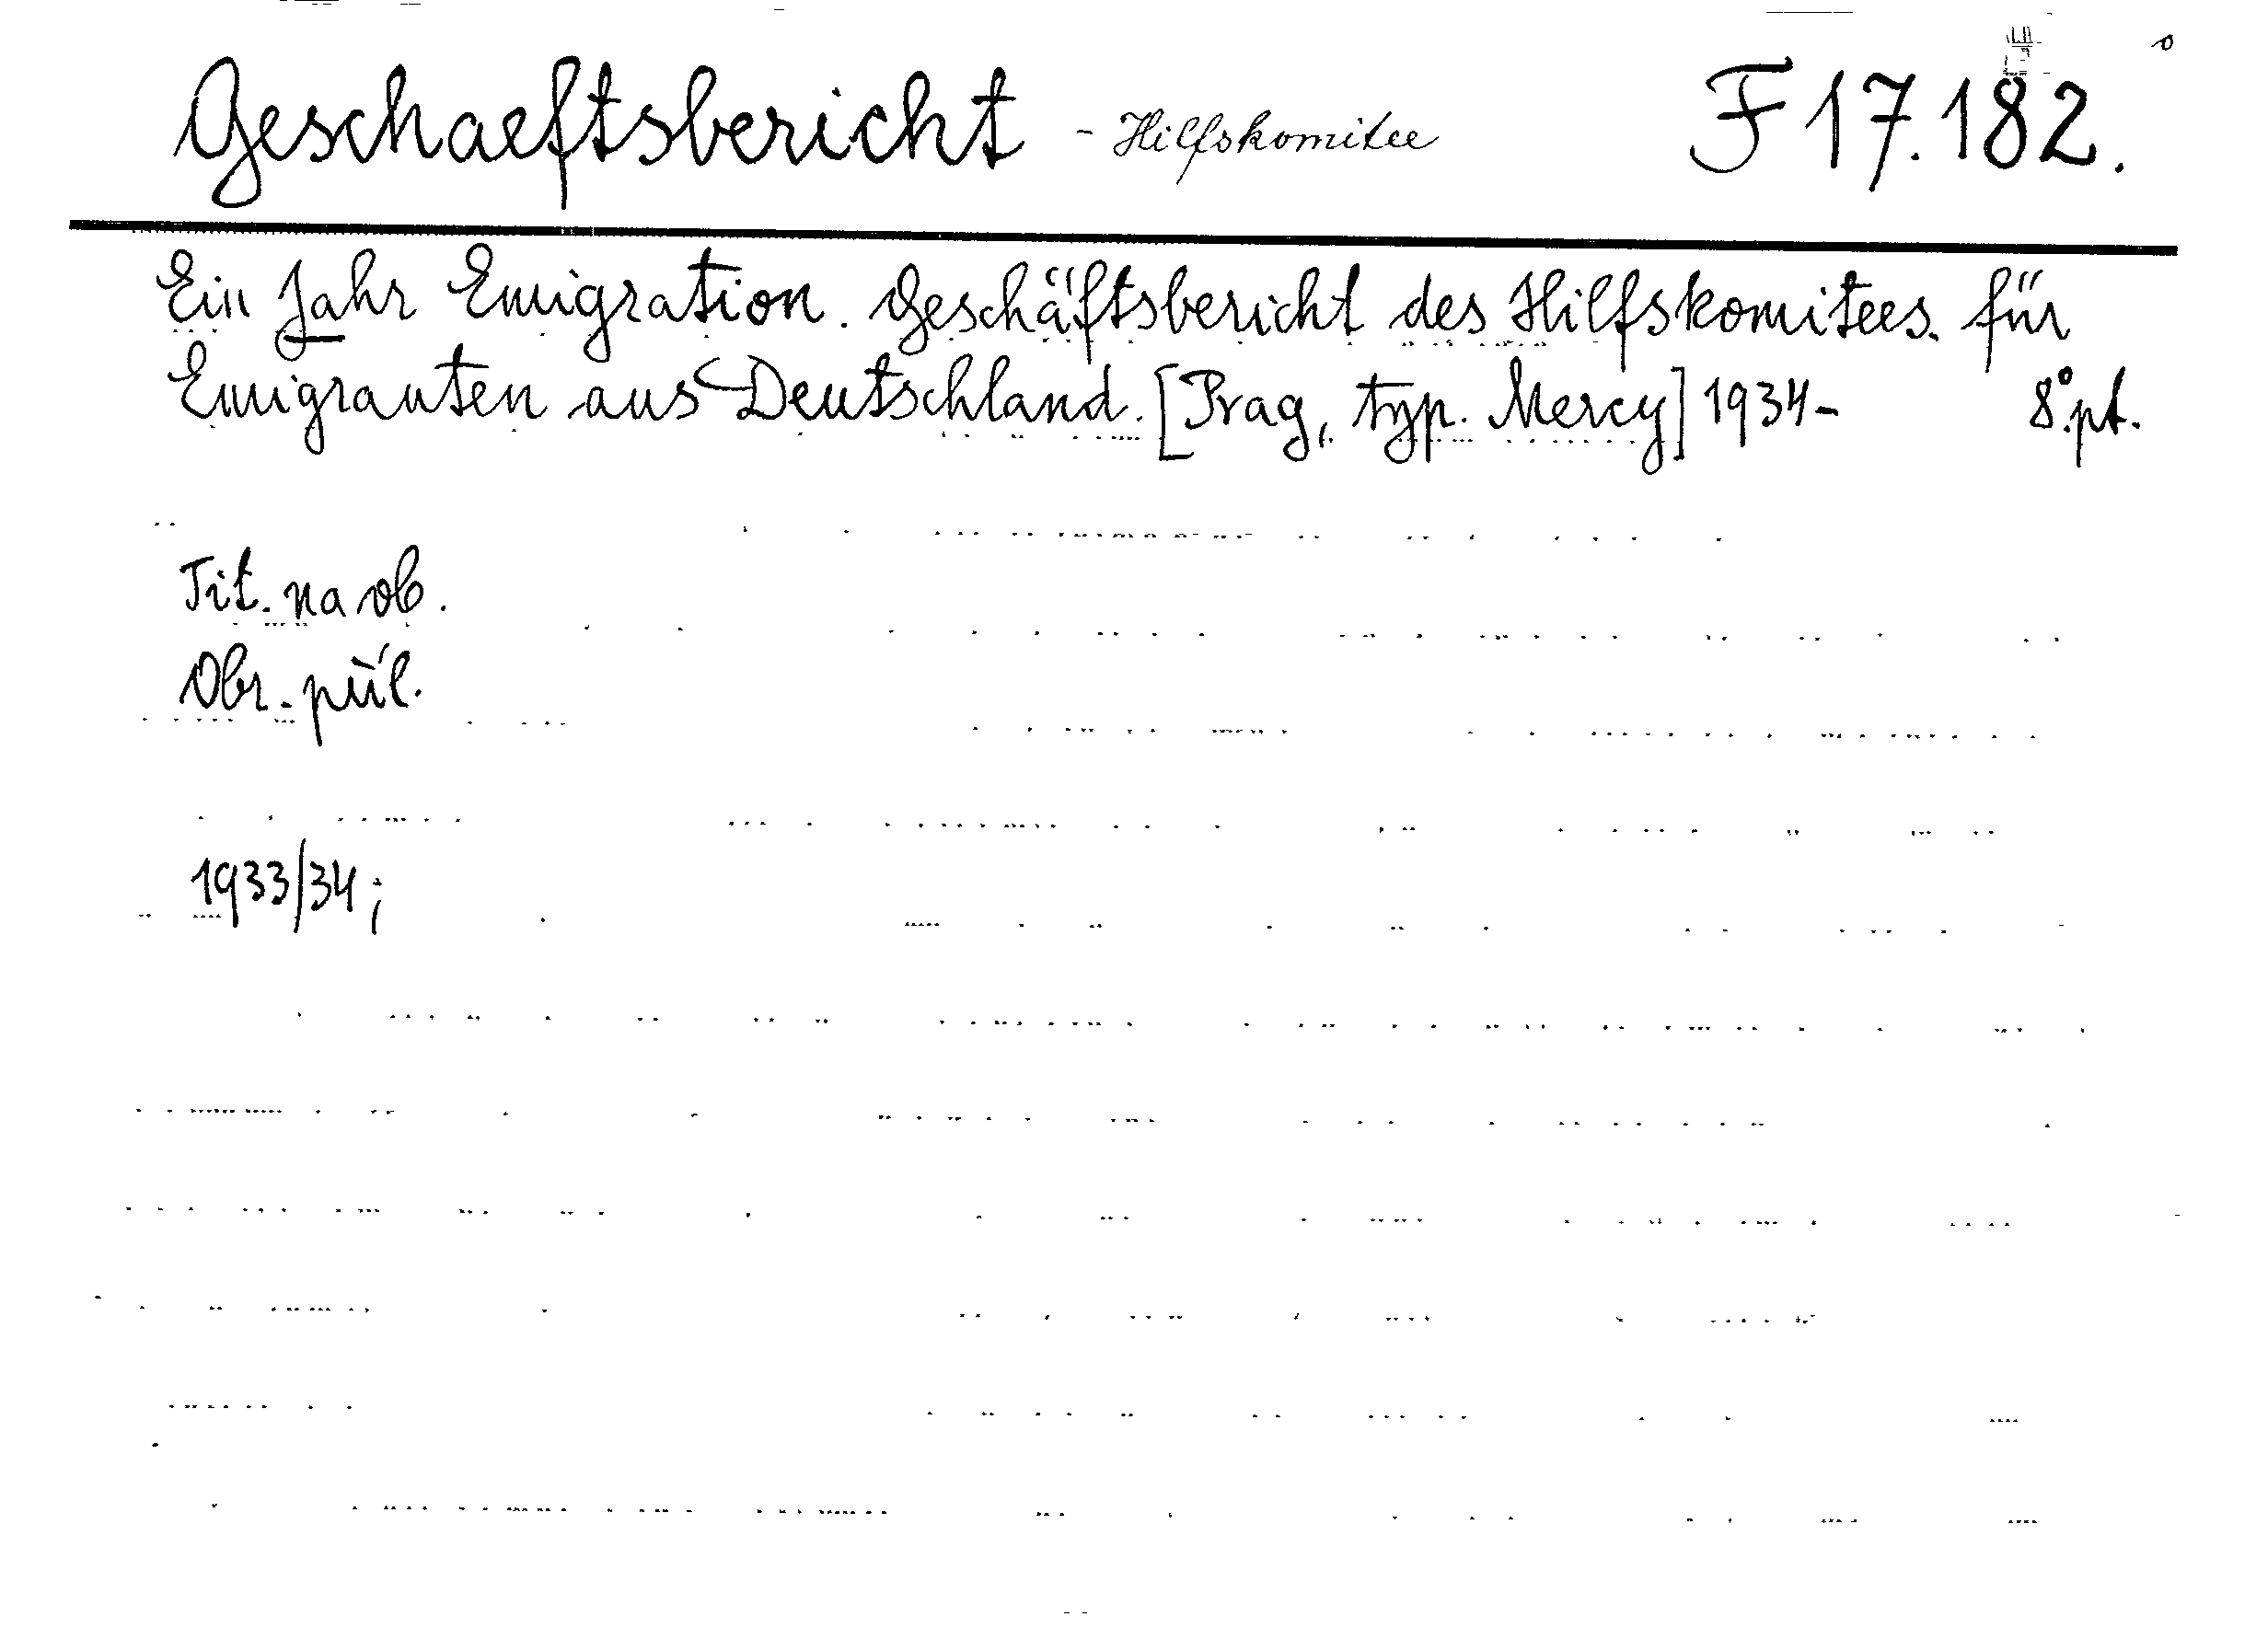 Geschaeftsbericht - Hilfskomitee F 17.182.
Ein Jahr Emigration. Geschäftsbericht des Hilfskomitees für
Emigranten aus Deutschland. [Prag, typ. Mercy] 1934- 8°.pt.
Tit. na ob.
Obr. příl.
1933/34;